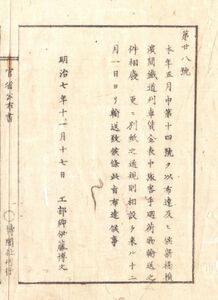 第廿八號
本年五月中第十四號ヲ以布達及ヒ候築橋横
濱間鐵道列車賃金表中旅客手廻荷物輸送之
件相廢シ更ニ別紙之通規則相設ケ來ル十二
月一日ヨリ輸送致候條此旨布達候事
明治七年十一月十七日
工部卿伊藤博文
官省公布書